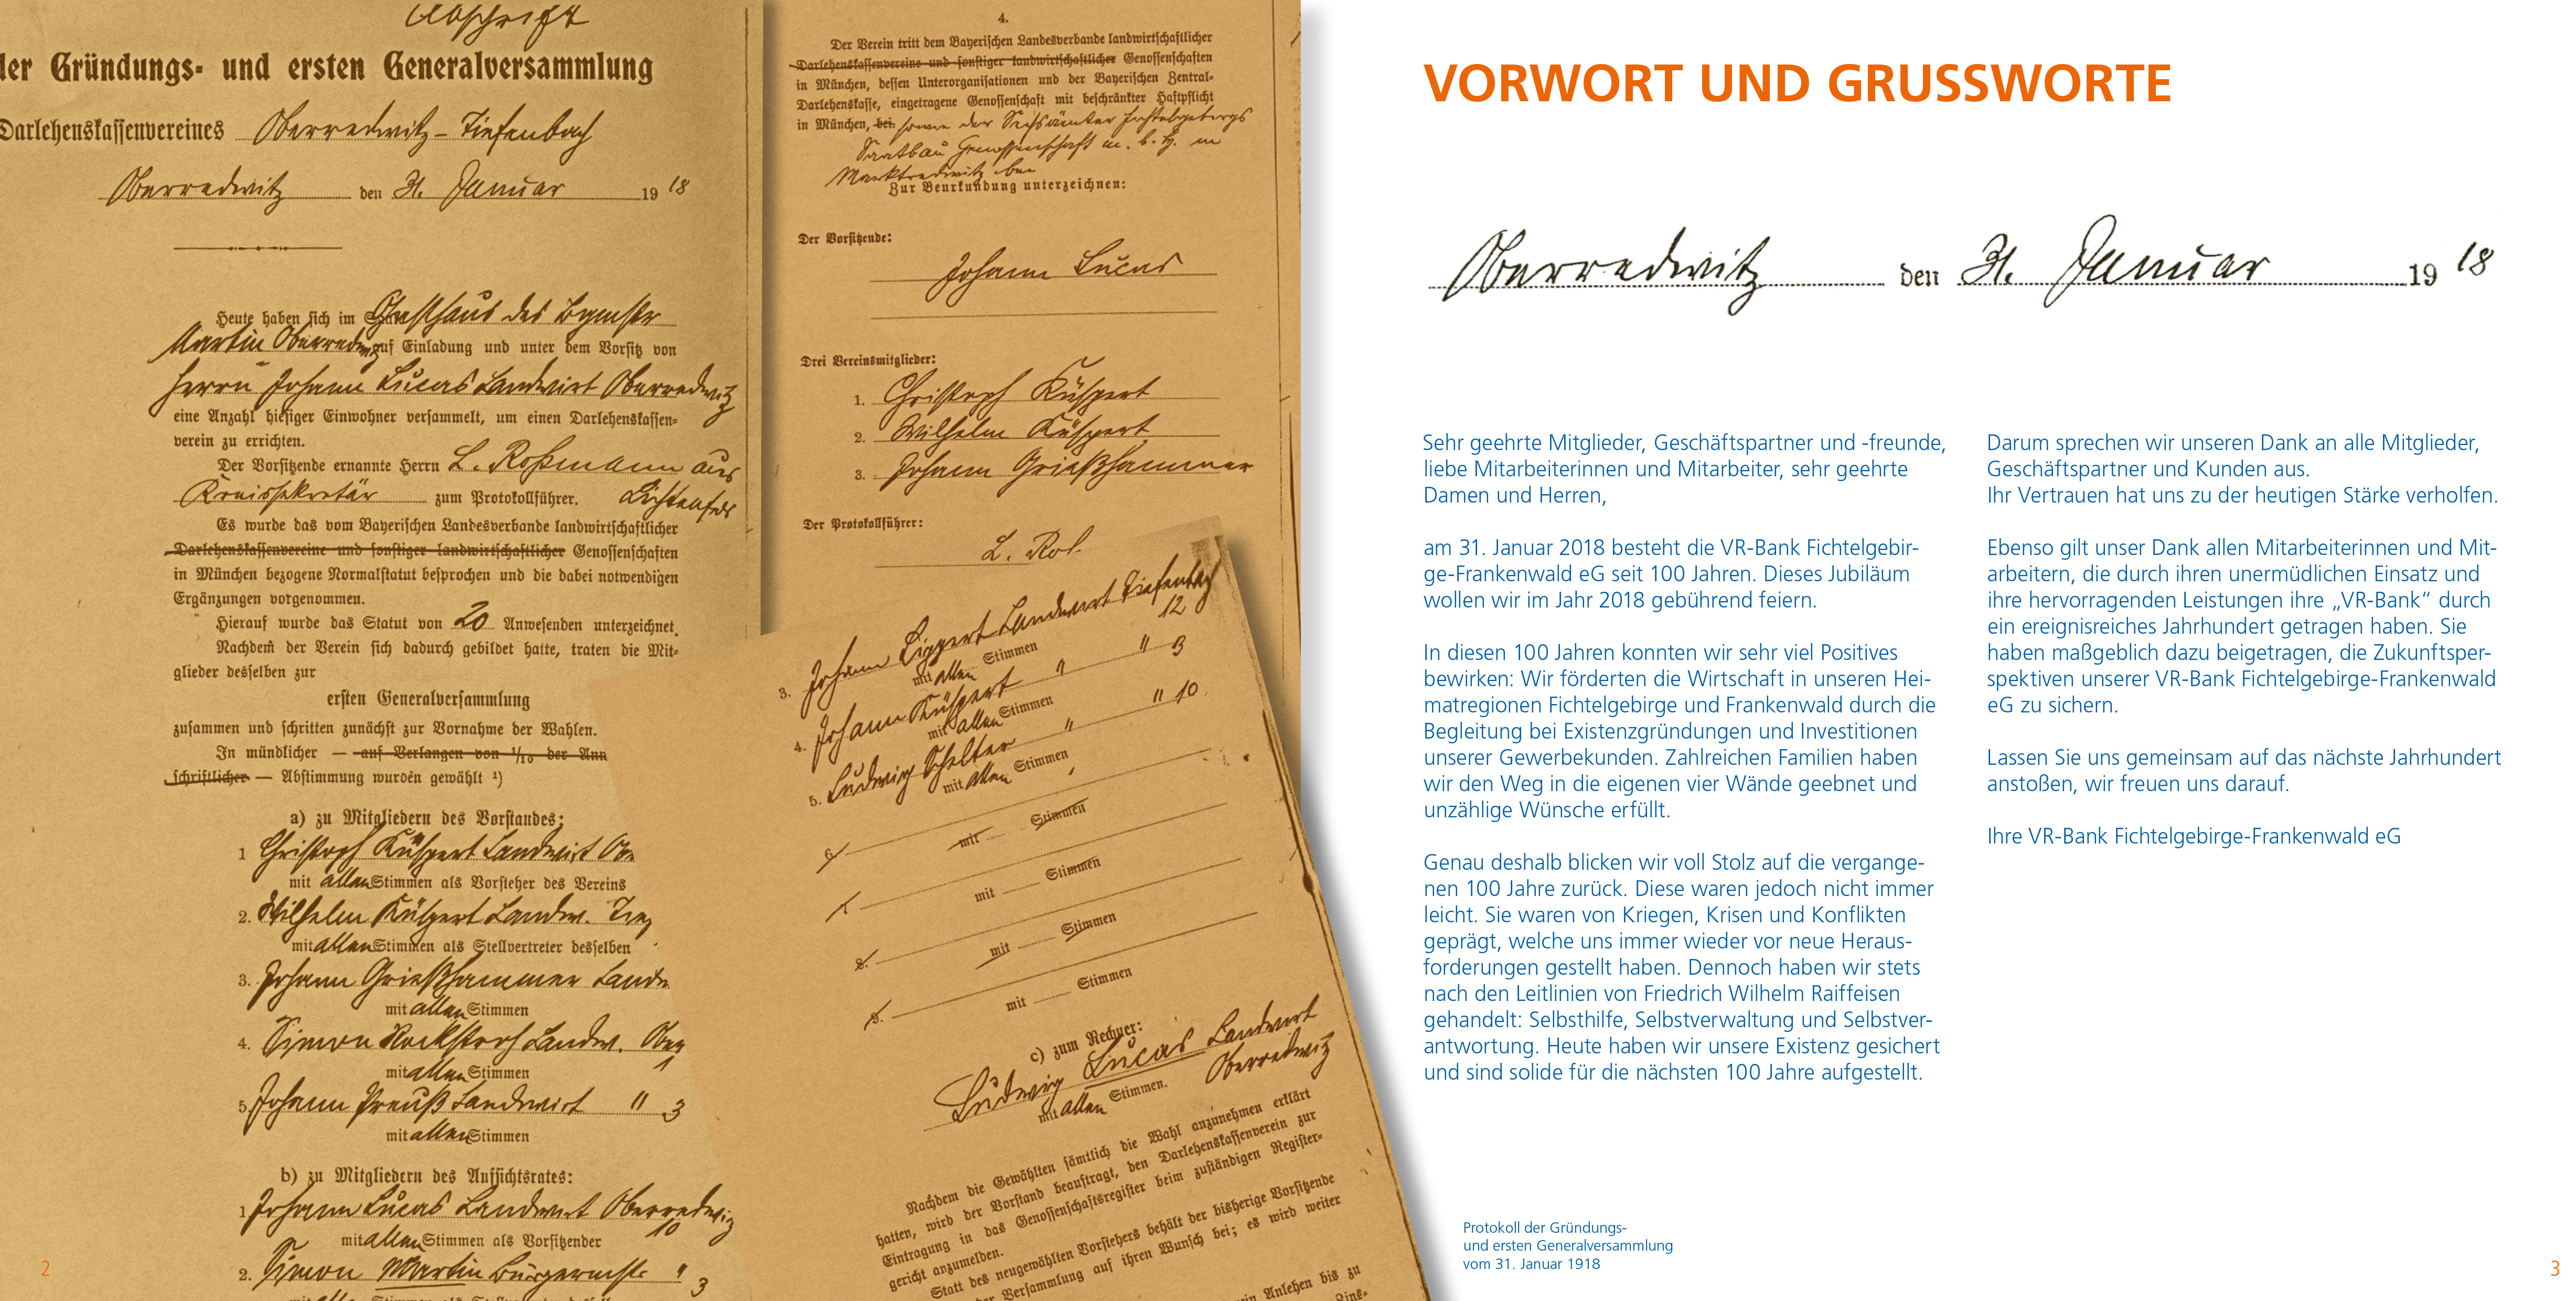 Abschrift
der Gründungs- und ersten Generalversammlung
Darlehenskassenvereines Oberredwitz-Tiefenbach
Oberredwitz den 31. Januar 1918
Heute haben sich im Gasthaus des Bgmstr
Martin Oberredwitz auf Einladung und unter dem Vorsitz von
Herrn Johann Lucas Landwirt Oberredwitz
eine Anzahl hiesiger Einwohner versammelt, um einen Darlehenskassen-
verein zu errichten.
Der Vorsitzende ernannte Herrn L. Roßmann aus
Kreissekretär zum Protokollführer. Lichtenfels
Es wurde das vom Bayerischen Landesverbande landwirtschaftlicher
Darlehenskassenvereine und sonstiger landwirtschaftlicher Genossenschaften
in München bezogene Normalstatut besprochen und die dabei notwendigen
Ergänzungen vorgenommen.
Hierauf wurde das Statut von 20 Anwesenden unterzeichnet.
Nachdem der Verein sich dadurch gebildet hatte, traten die Mit-
glieder desselben zur
ersten Generalversammlung
zusammen und schritten zunächst zur Vornahme der Wahlen.
In mündlicher — auf Verlangen von 1/10 der Ann
schriftlicher — Abstimmung wurden gewählt ¹)
a) zu Mitgliedern des Vorstandes:
1 Christoph Küspert Landwirt
mit allen Stimmen als Vorsteher des Vereins
2. Wilhelm Küspert Landw.
mit allen Stimmen als Stellvertreter desselben
3. Johann Grießhammer
mit allen Stimmen
4. Simon Rockstroh Landw.
mit allen Stimmen
5. Johann Preuß Landwirt " 3
mit allen Stimmen
b) zu Mitgliedern des Aufsichtsrates:
1. Johann Lucas Landwirt Oberredwitz
10
mit allen Stimmen als Vorsitzender
2. Simon Martin Bürgermstr " 3
2
4.
Der Verein tritt dem Bayerischen Landesverbande landwirtschaftlicher
Darlehenskassenvereine und sonstiger landwirtschaftlicher Genossenschaften
in München, dessen Unterorganisationen und der Bayerischen Zentral-
Darlehenskasse, eingetragene Genossenschaft mit beschränkter Haftpflicht
in München, bei sowie der Sechsämter Fichtelgebirgs
Saatbau Genossenschaft m. b. H. in
Marktredwitz bei
Zur Beurkundung unterzeichnen:
Der Vorsitzende:
Johann Lucas
Drei Vereinsmitglieder:
1. Christoph Küspert
2. Wilhelm Küspert
3. Johann Grießhammer
Der Protokollführer:
L. Roß
3. Johann Lippert Landwirt Tiefenbach
12
mit allen Stimmen
4. Johann Küspert " " 3
mit allen Stimmen
5. Ludwig Schelter " " 10
mit allen Stimmen
6. mit Stimmen
7. mit Stimmen
8. mit Stimmen
9. mit Stimmen
c) zum Rechner:
Ludwig Lucas Landwirt
mit allen Stimmen. Oberredwitz
Nachdem die Gewählten sämtlich die Wahl anzunehmen erklärt
hatten, wird der Vorstand beauftragt, den Darlehenskassenverein zur
Eintragung in das Genossenschaftsregister beim zuständigen Register-
gericht anzumelden.
Statt des neugewählten Vorstehers behält der bisherige Vorsitzende
der Versammlung auf ihren Wunsch bei; es wird weiter
ein Anlehen bis zu
Zins-
VORWORT UND GRUSSWORTE
Oberredwitz den 31. Januar 1918
Sehr geehrte Mitglieder, Geschäftspartner und -freunde,
liebe Mitarbeiterinnen und Mitarbeiter, sehr geehrte
Damen und Herren,
am 31. Januar 2018 besteht die VR-Bank Fichtelgebir-
ge-Frankenwald eG seit 100 Jahren. Dieses Jubiläum
wollen wir im Jahr 2018 gebührend feiern.
In diesen 100 Jahren konnten wir sehr viel Positives
bewirken: Wir förderten die Wirtschaft in unseren Hei-
matregionen Fichtelgebirge und Frankenwald durch die
Begleitung bei Existenzgründungen und Investitionen
unserer Gewerbekunden. Zahlreichen Familien haben
wir den Weg in die eigenen vier Wände geebnet und
unzählige Wünsche erfüllt.
Genau deshalb blicken wir voll Stolz auf die vergange-
nen 100 Jahre zurück. Diese waren jedoch nicht immer
leicht. Sie waren von Kriegen, Krisen und Konflikten
geprägt, welche uns immer wieder vor neue Heraus-
forderungen gestellt haben. Dennoch haben wir stets
nach den Leitlinien von Friedrich Wilhelm Raiffeisen
gehandelt: Selbsthilfe, Selbstverwaltung und Selbstver-
antwortung. Heute haben wir unsere Existenz gesichert
und sind solide für die nächsten 100 Jahre aufgestellt.
Darum sprechen wir unseren Dank an alle Mitglieder,
Geschäftspartner und Kunden aus.
Ihr Vertrauen hat uns zu der heutigen Stärke verholfen.
Ebenso gilt unser Dank allen Mitarbeiterinnen und Mit-
arbeitern, die durch ihren unermüdlichen Einsatz und
ihre hervorragenden Leistungen ihre „VR-Bank“ durch
ein ereignisreiches Jahrhundert getragen haben. Sie
haben maßgeblich dazu beigetragen, die Zukunftsper-
spektiven unserer VR-Bank Fichtelgebirge-Frankenwald
eG zu sichern.
Lassen Sie uns gemeinsam auf das nächste Jahrhundert
anstoßen, wir freuen uns darauf.
Ihre VR-Bank Fichtelgebirge-Frankenwald eG
Protokoll der Gründungs-
und ersten Generalversammlung
vom 31. Januar 1918
3